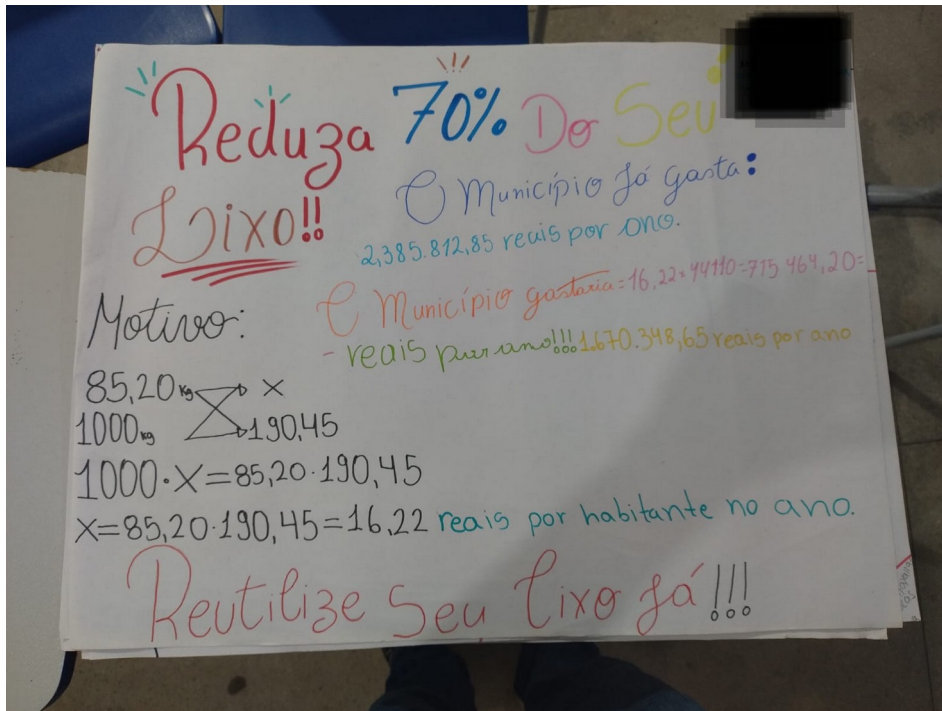 Reduza 70% Do Seu
Lixo!!
O Município Já gasta:
2,385.812,85 reais por ano.
O Município gastaria=16,22×44110=715 464,20=
- reais por ano!!! 1.670.348,65 reais por ano
Motivo:
85,20 kg x
1000 kg 190,45
1000·X=85,20·190,45
X=85,20·190,45=16,22 reais por habitante no ano.
Reutilize Seu lixo Já!!!